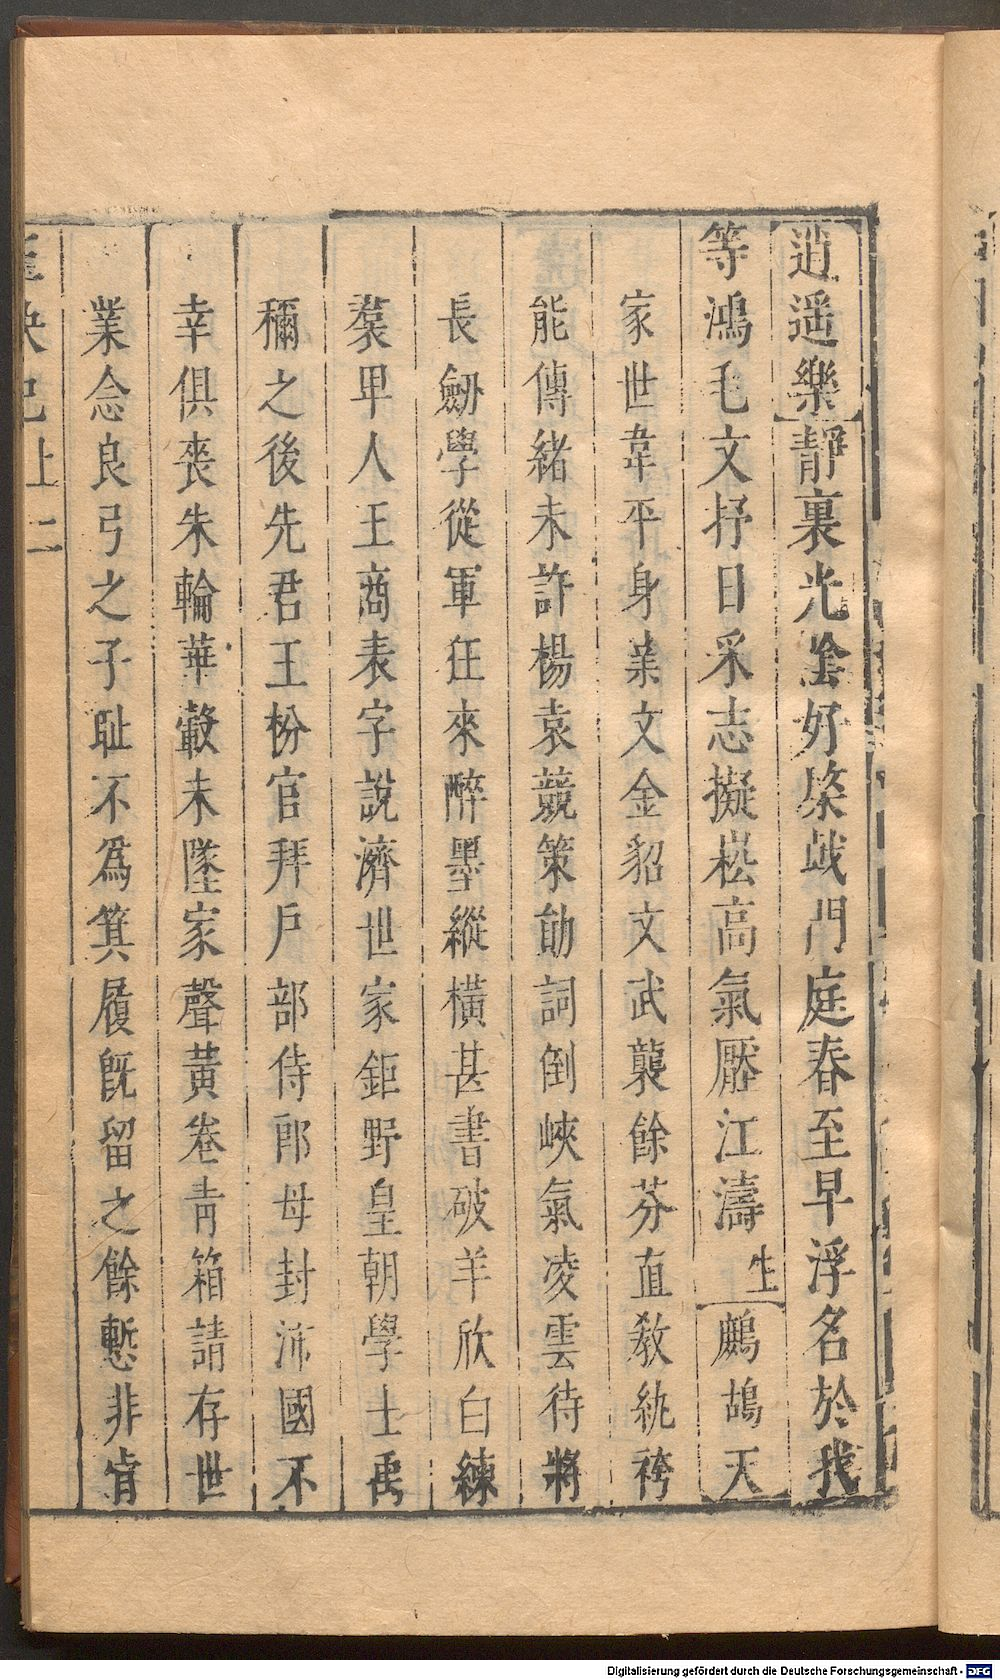 逍遥樂靜裏光隂好棨㦸門庭春至早浮名於我
等鴻毛文抒日采志擬崧高氣壓江濤生鷓鴣天
家世韋平身業文金貂文武襲餘芬直教紈袴
能傳緒未許楊袁競策勛詞倒峽氣凌雲待將
長劒學從軍狂來醉墨縱橫甚書破羊欣白練
羣甲人王商表字說濟世家鉅野皇朝學士禹
穪之後先君王枌官拜戶部侍郎母封沛國不
幸俱喪朱輪華轂未墜家聲黃卷青箱請存世
業念良弓之子耻不爲箕履旣留之餘慙非肯
記上二
Digitalisierung gefördert durch die Deutsche Forschungsgemeinschaft - DFG